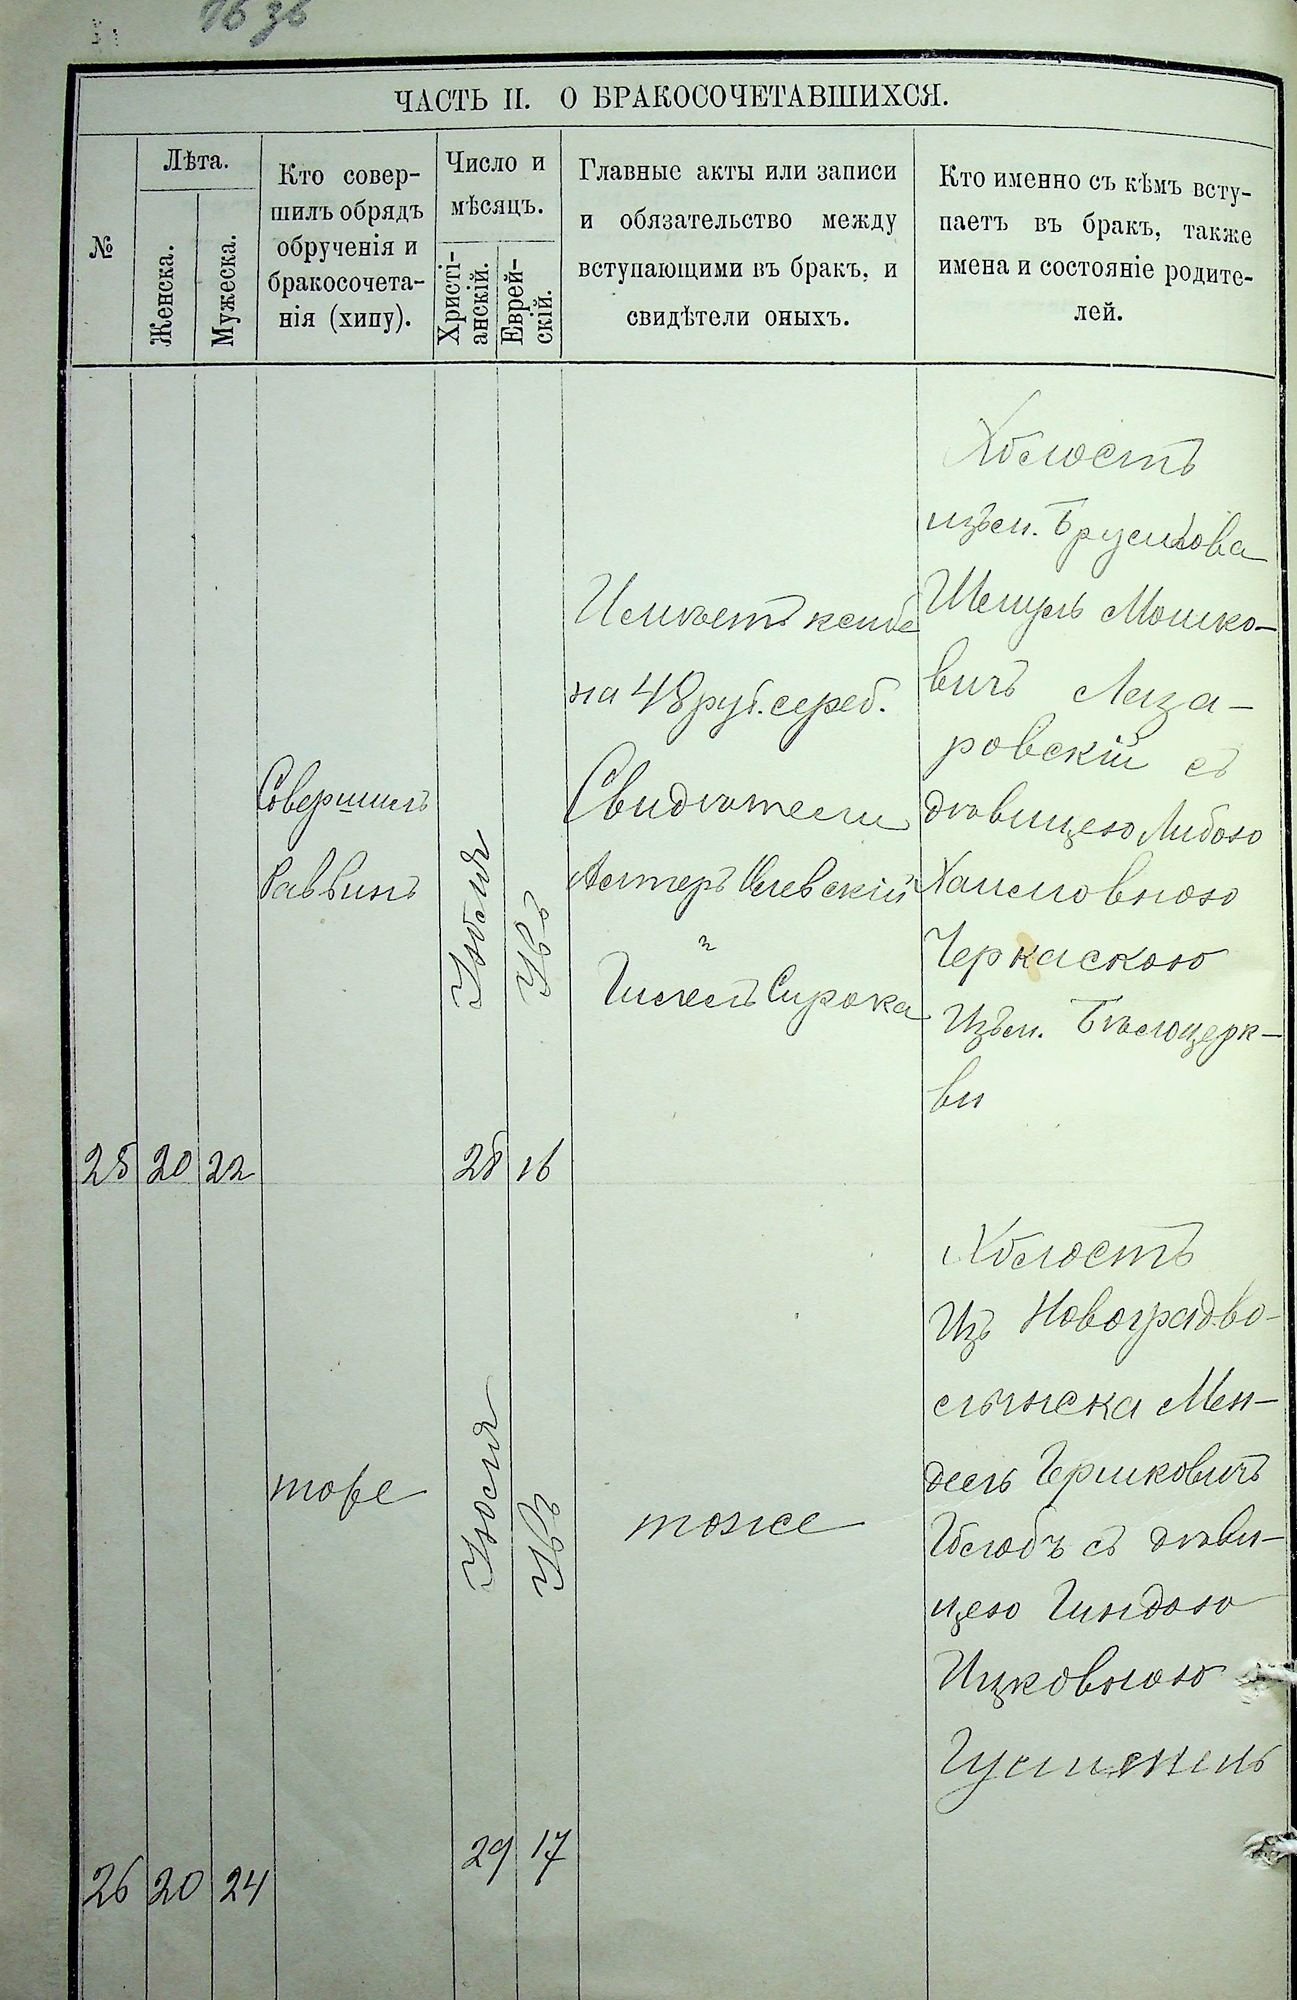 ЧАСТЬ II. О БРАКОСОЧЕТАВШИХСЯ.
№
Лѣта.
Женска.
Мужеска.
Кто совер-
шилъ обрядъ
обрученія и
бракосочета-
нія (хипу).
Число и
мѣсяцъ.
Христі-
анскій.
Еврей-
скій.
Главные акты или записи
и обязательство между
вступающими въ бракъ, и
свидѣтели оныхъ.
Кто именно съ кѣмъ всту-
паетъ въ бракъ, также
имена и состояніе родите-
лей.
25
20
22
Совершилъ
Раввинъ
Юбля
28
16
на 48 руб. сереб.
Свидѣтели
и
Сирока
Холостъ
изъ м. Брусилова
Шмуль Мошко-
вичъ Лаза-
ровскій съ
дѣвицею Либою
Хаимовною
Черкаскою
Изъ м. Бѣлоцерк-
ви
26
20
24
тоже
Іюля
29
17
тоже
Холостъ
Изъ Новоградво-
лынска Мен-
дель Гершковичъ
Голубъ съ дѣви-
цею Гиндою
Ицковною